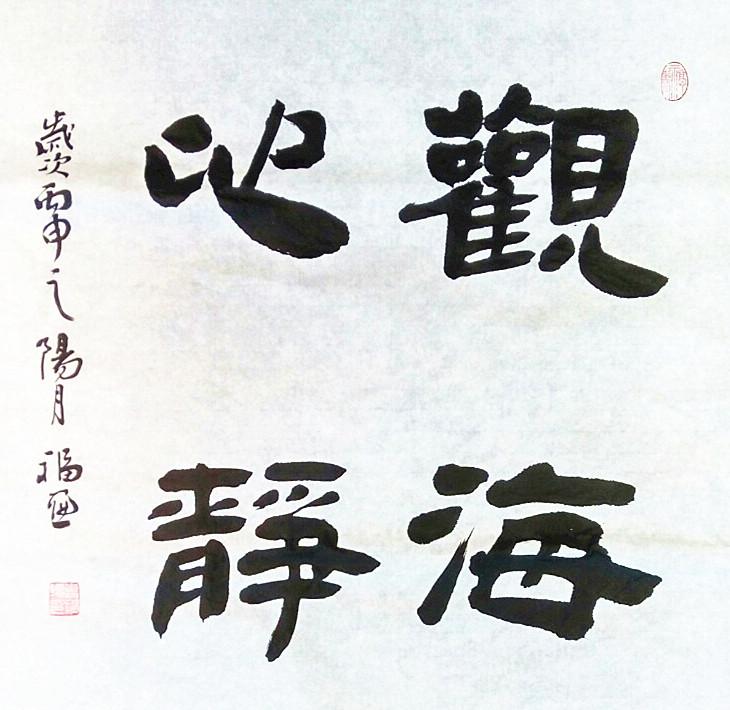 觀海
心靜
歲次丙申之陽月 福